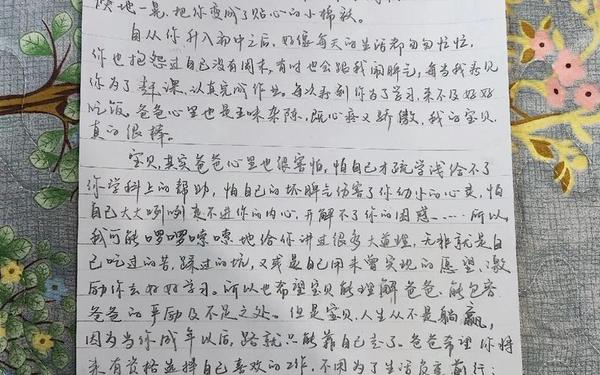 快地一晃,把你变成了贴心的小棉袄。
自从你升入初中之后,好像每天的生活都匆匆忙忙,
你也抱怨过自己没有周末,有时也会跟我闹脾气,每当我看见
你为了 课,认真完成作业。每次看到你为了学习,来不及好好
吃饭,爸爸心里也是五味杂陈,既心疼又骄傲,我的宝贝
真的很棒。
宝贝,其实爸爸心里也很害怕,怕自己才疏学浅给不了
你学科上的帮助,怕自己的坏脾气伤害了你幼小的心灵,怕
自己大大咧咧走不进你的内心,开解不了你的困惑……所以,
我可能啰啰嗦嗦地给你讲过很多大道理,无非就是自
己吃过的苦,踩过的坑,又或是自己用来曾实现的愿望,激
励你去好好学习。所以也希望宝贝能理解爸爸,能包容
爸爸的严厉及不足之处。但是宝贝,人生从不是躺赢,
因为当你成年以后,路就只能靠自己走了。爸爸希望你将
来有资格选择自己喜欢的工作,不因为了生活负重前行;